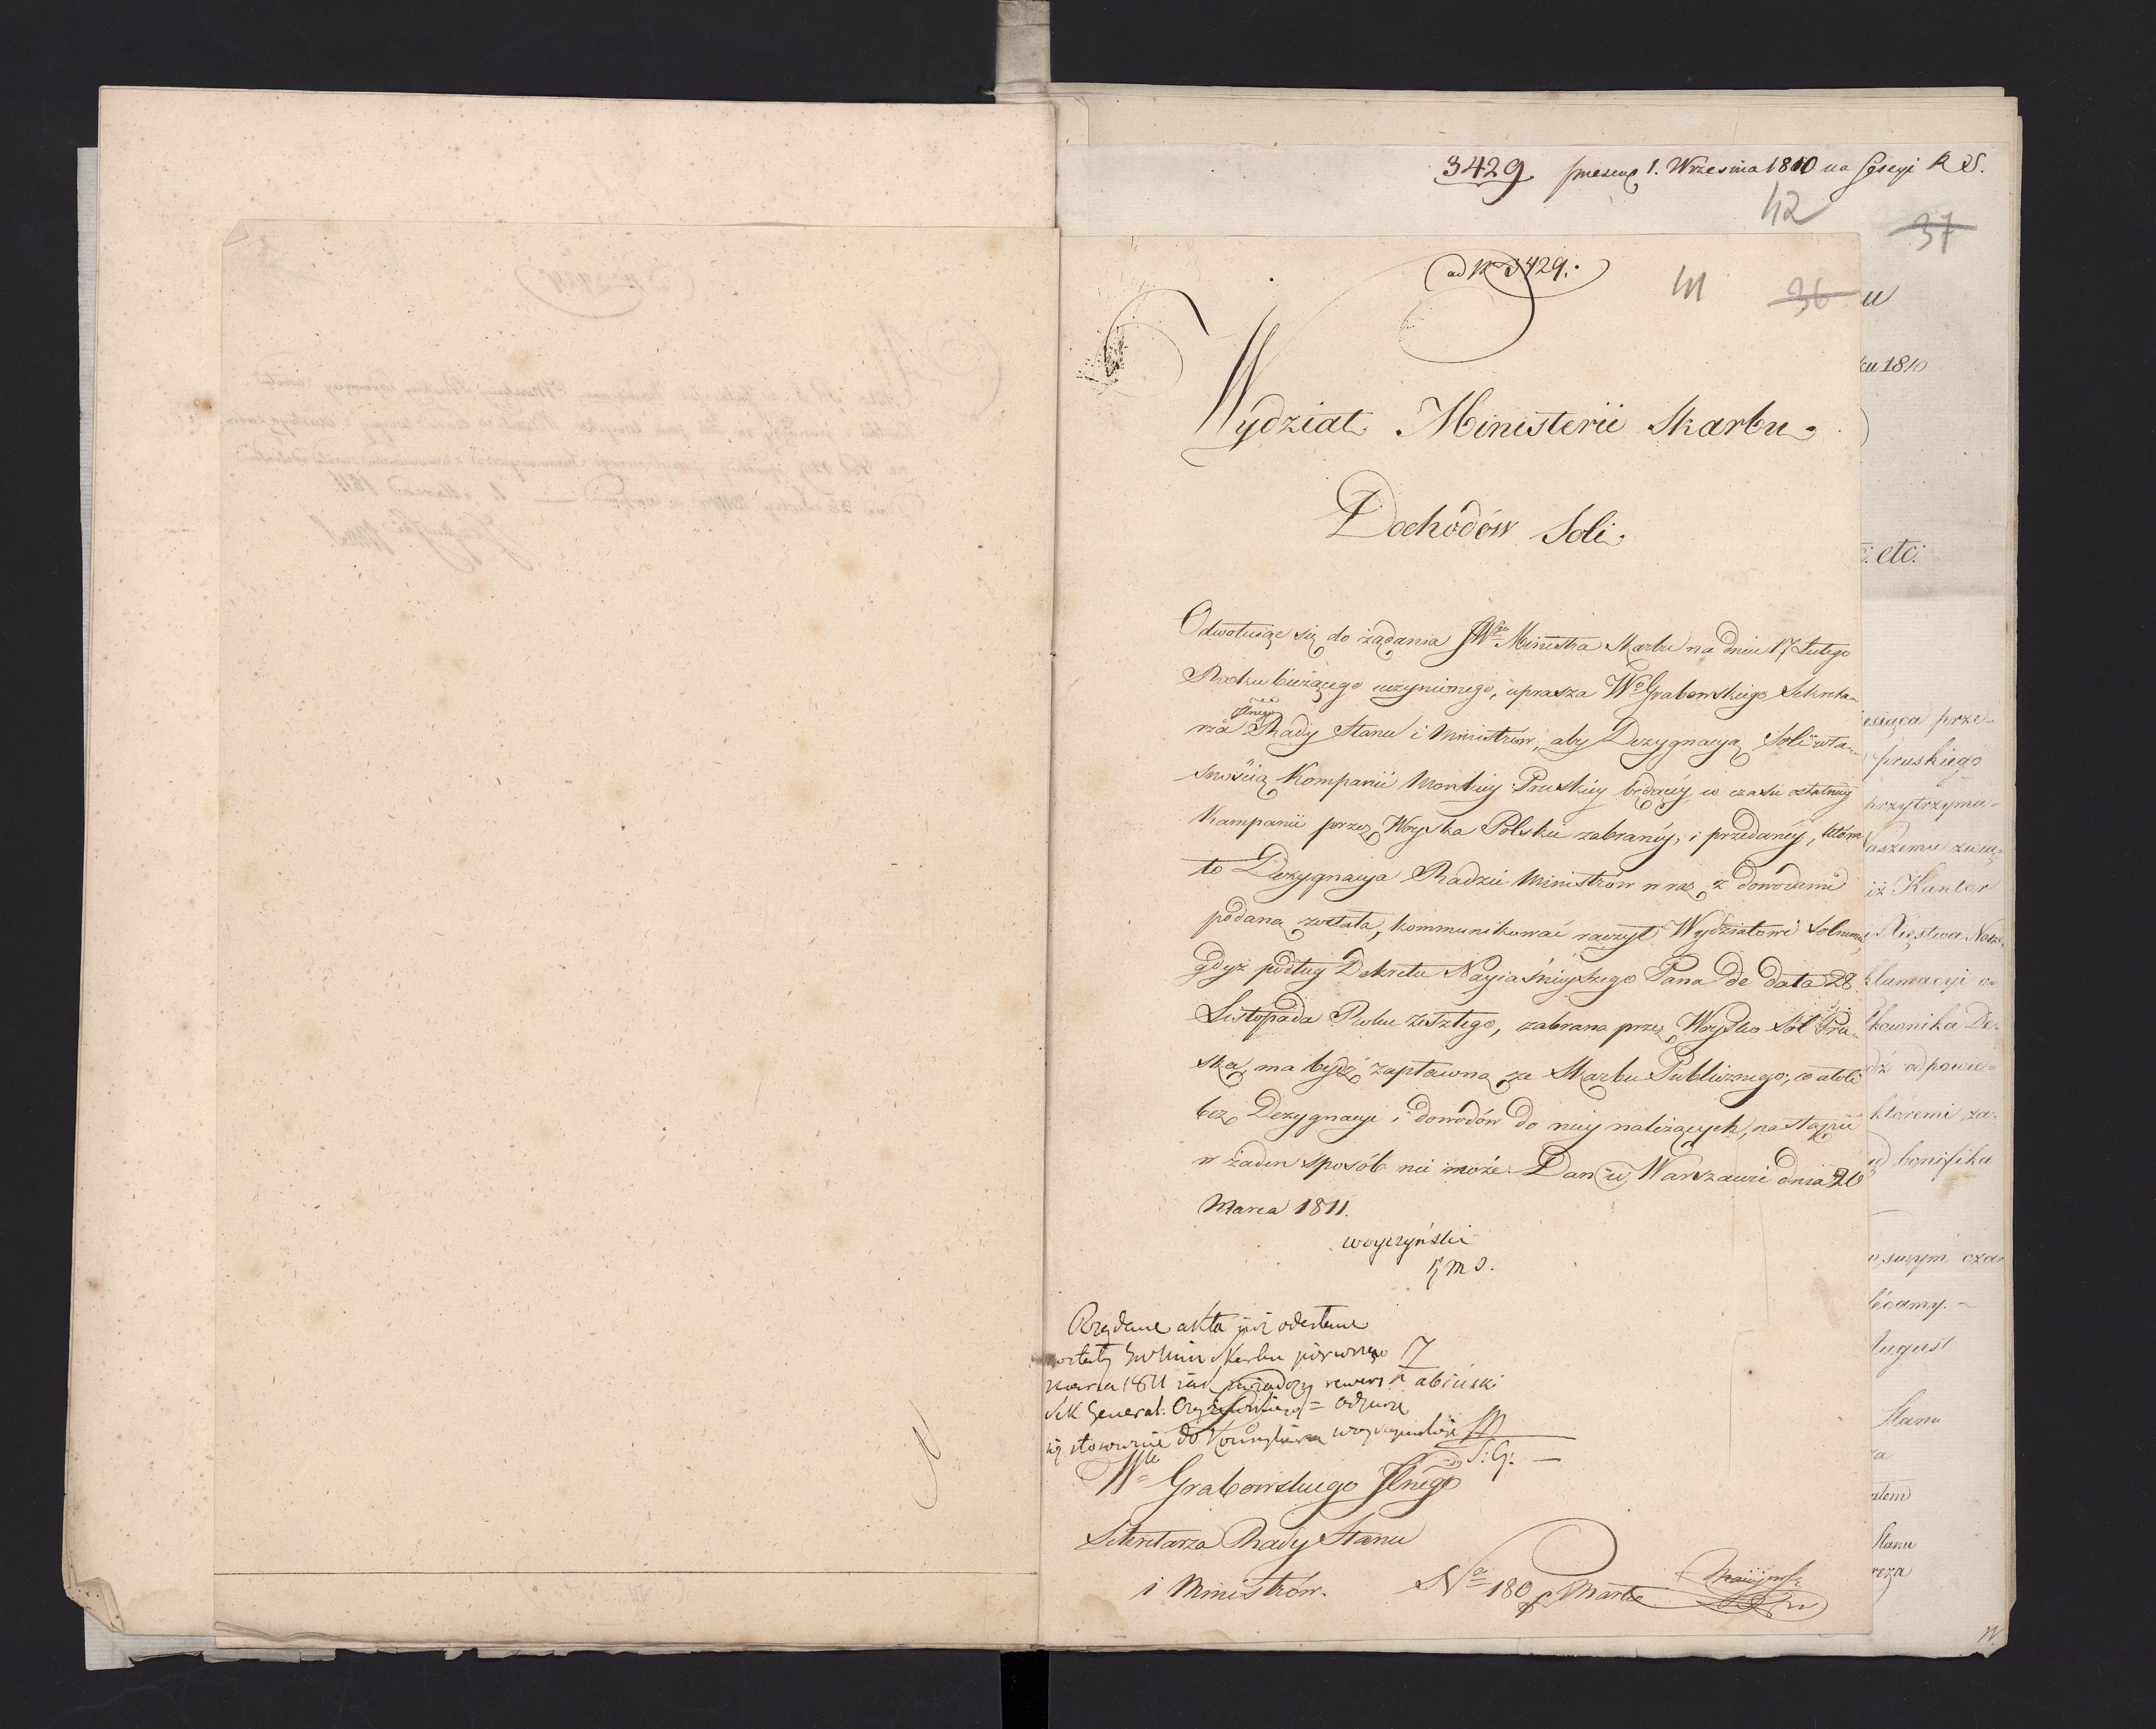 3429 1. Września 1810 na Sessyi R S.
42
37
ad Nro 3429.
41 36
Wydział Ministerii Skarbu
Dochodów Soli.
Odwołuiąc się do żądania JWgo Ministra Skarbu na dniu 17 Lutego
Roku bieżącego uczynionego, uprasza Wo Grabowskiego Sekreta-
rza Jlnego Rady Stanu i Ministrów, aby Dezygnacyą Soli wła-
snością Kompanii Morskiey Pruskiey będącéy w czasie ostatniey
Kampanii przez Woyska Polskie zabranéy, i przedanéy, która
to Dezygnacya Radzie Ministrów wraz z dowodami
podana została, kommunikować raczył Wydziałowi Solnemu,
gdyż podług Dekretu Nayiaśnieyszego Pana de data 28
Listopada Roku zeszłego, zabrana przez Woysko Sól Pru-
ska, ma bydź zapłacona ze Skarbu Publicznego, co atoli
bez Dezygnacyi i dowodów do niey należących, nastąpić
w żaden sposób nie może. Dan w Warszawie dnia 26
Marca 1811.
Woyczyński
Rządane akta już odesłane
zostały Skarbu pierwszego 7
marca 1811 iak świadczy rewers
Sek General.
się stosownie do
S: G:
Wo Grabowskiego Jlnego
Sekretarza Rady Stanu
i Ministrów.
No 180 Marca
u
ku 1810
etc: etc:
esiąca prze-
pruskiego
przytrzymu-
Naszemu
iż Kantor
Xięstwa Nasze-
klamacyi o-
łkownika De-
dź odpowie-
któremi za-
bonifika
w swym cza-
lécamy. -
August
Stanu
za
Stanu
reza